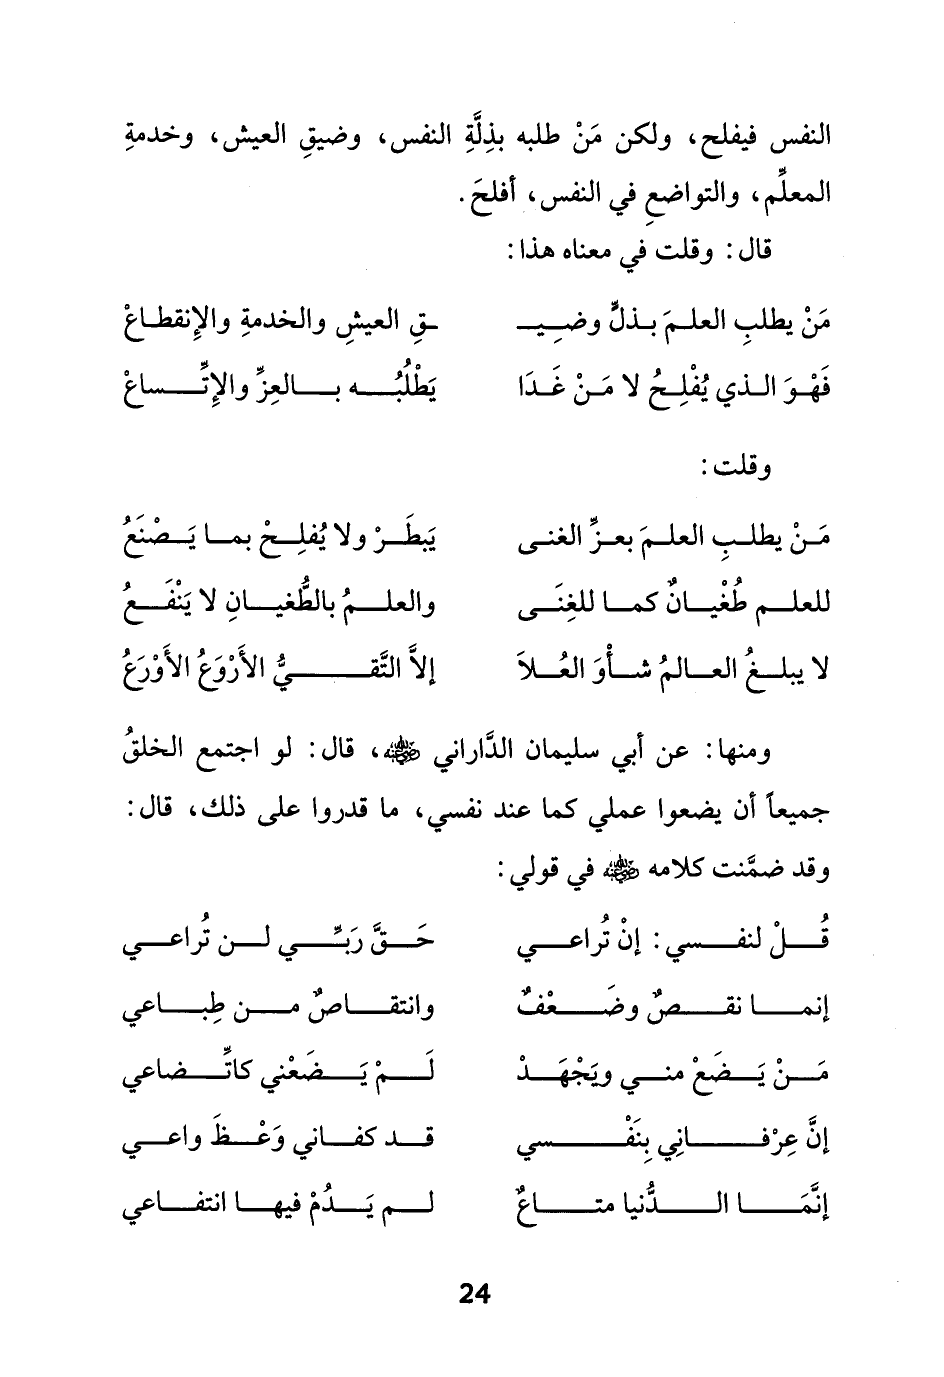 النفس فيفلح، ولكن مَنْ طلبه بذِلَّةِ النفس، وضيقِ العيش، وخدمةِ
المعلِّم، والتواضعِ في النفس، أفلحَ.
قال: وقلت في معناه هذا:
مَنْ يطلبِ العلمَ بذلٍّ وضيـ ـقِ العيشِ والخدمةِ والإنقطاعْ
فَهْوَ الذي يُفْلِحُ لا مَنْ غَدَا يَطْلُبُه بالعزِّ والإتِّساعْ
وقلت:
مَنْ يطلبِ العلمَ بعزِّ الغنى يَبطَرْ ولا يُفلِحْ بما يَصْنَعُ
للعلم طُغْيانٌ كما للغِنَى والعلمُ بالطُّغيانِ لا يَنْفَعُ
لا يبلغُ العالمُ شأْوَ العُلاَ إلاَّ التَّقيُّ الأَرْوَعُ الأَوْرَعُ
ومنها: عن أبي سليمان الدَّاراني رضي الله عنه، قال: لو اجتمع الخلقُ
جميعاً أن يضعوا عملي كما عند نفسي، ما قدروا على ذلك، قال:
وقد ضمَّنت كلامه رضي الله عنه في قولي:
قُلْ لنفسي: إنْ تُراعي حَقَّ رَبِّي لن تُراعي
إنما نقصٌ وضَعْفٌ وانتقاصٌ من طِباعي
مَنْ يَضَعْ مني ويَجْهَدْ لَمْ يَضَعْني كاتِّضاعي
إنَّ عِرْفانِي بِنَفْسي قد كفاني وَعْظَ واعي
إنَّمَا الدُّنيا متاعٌ لم يَدُمْ فيها انتفاعي
24